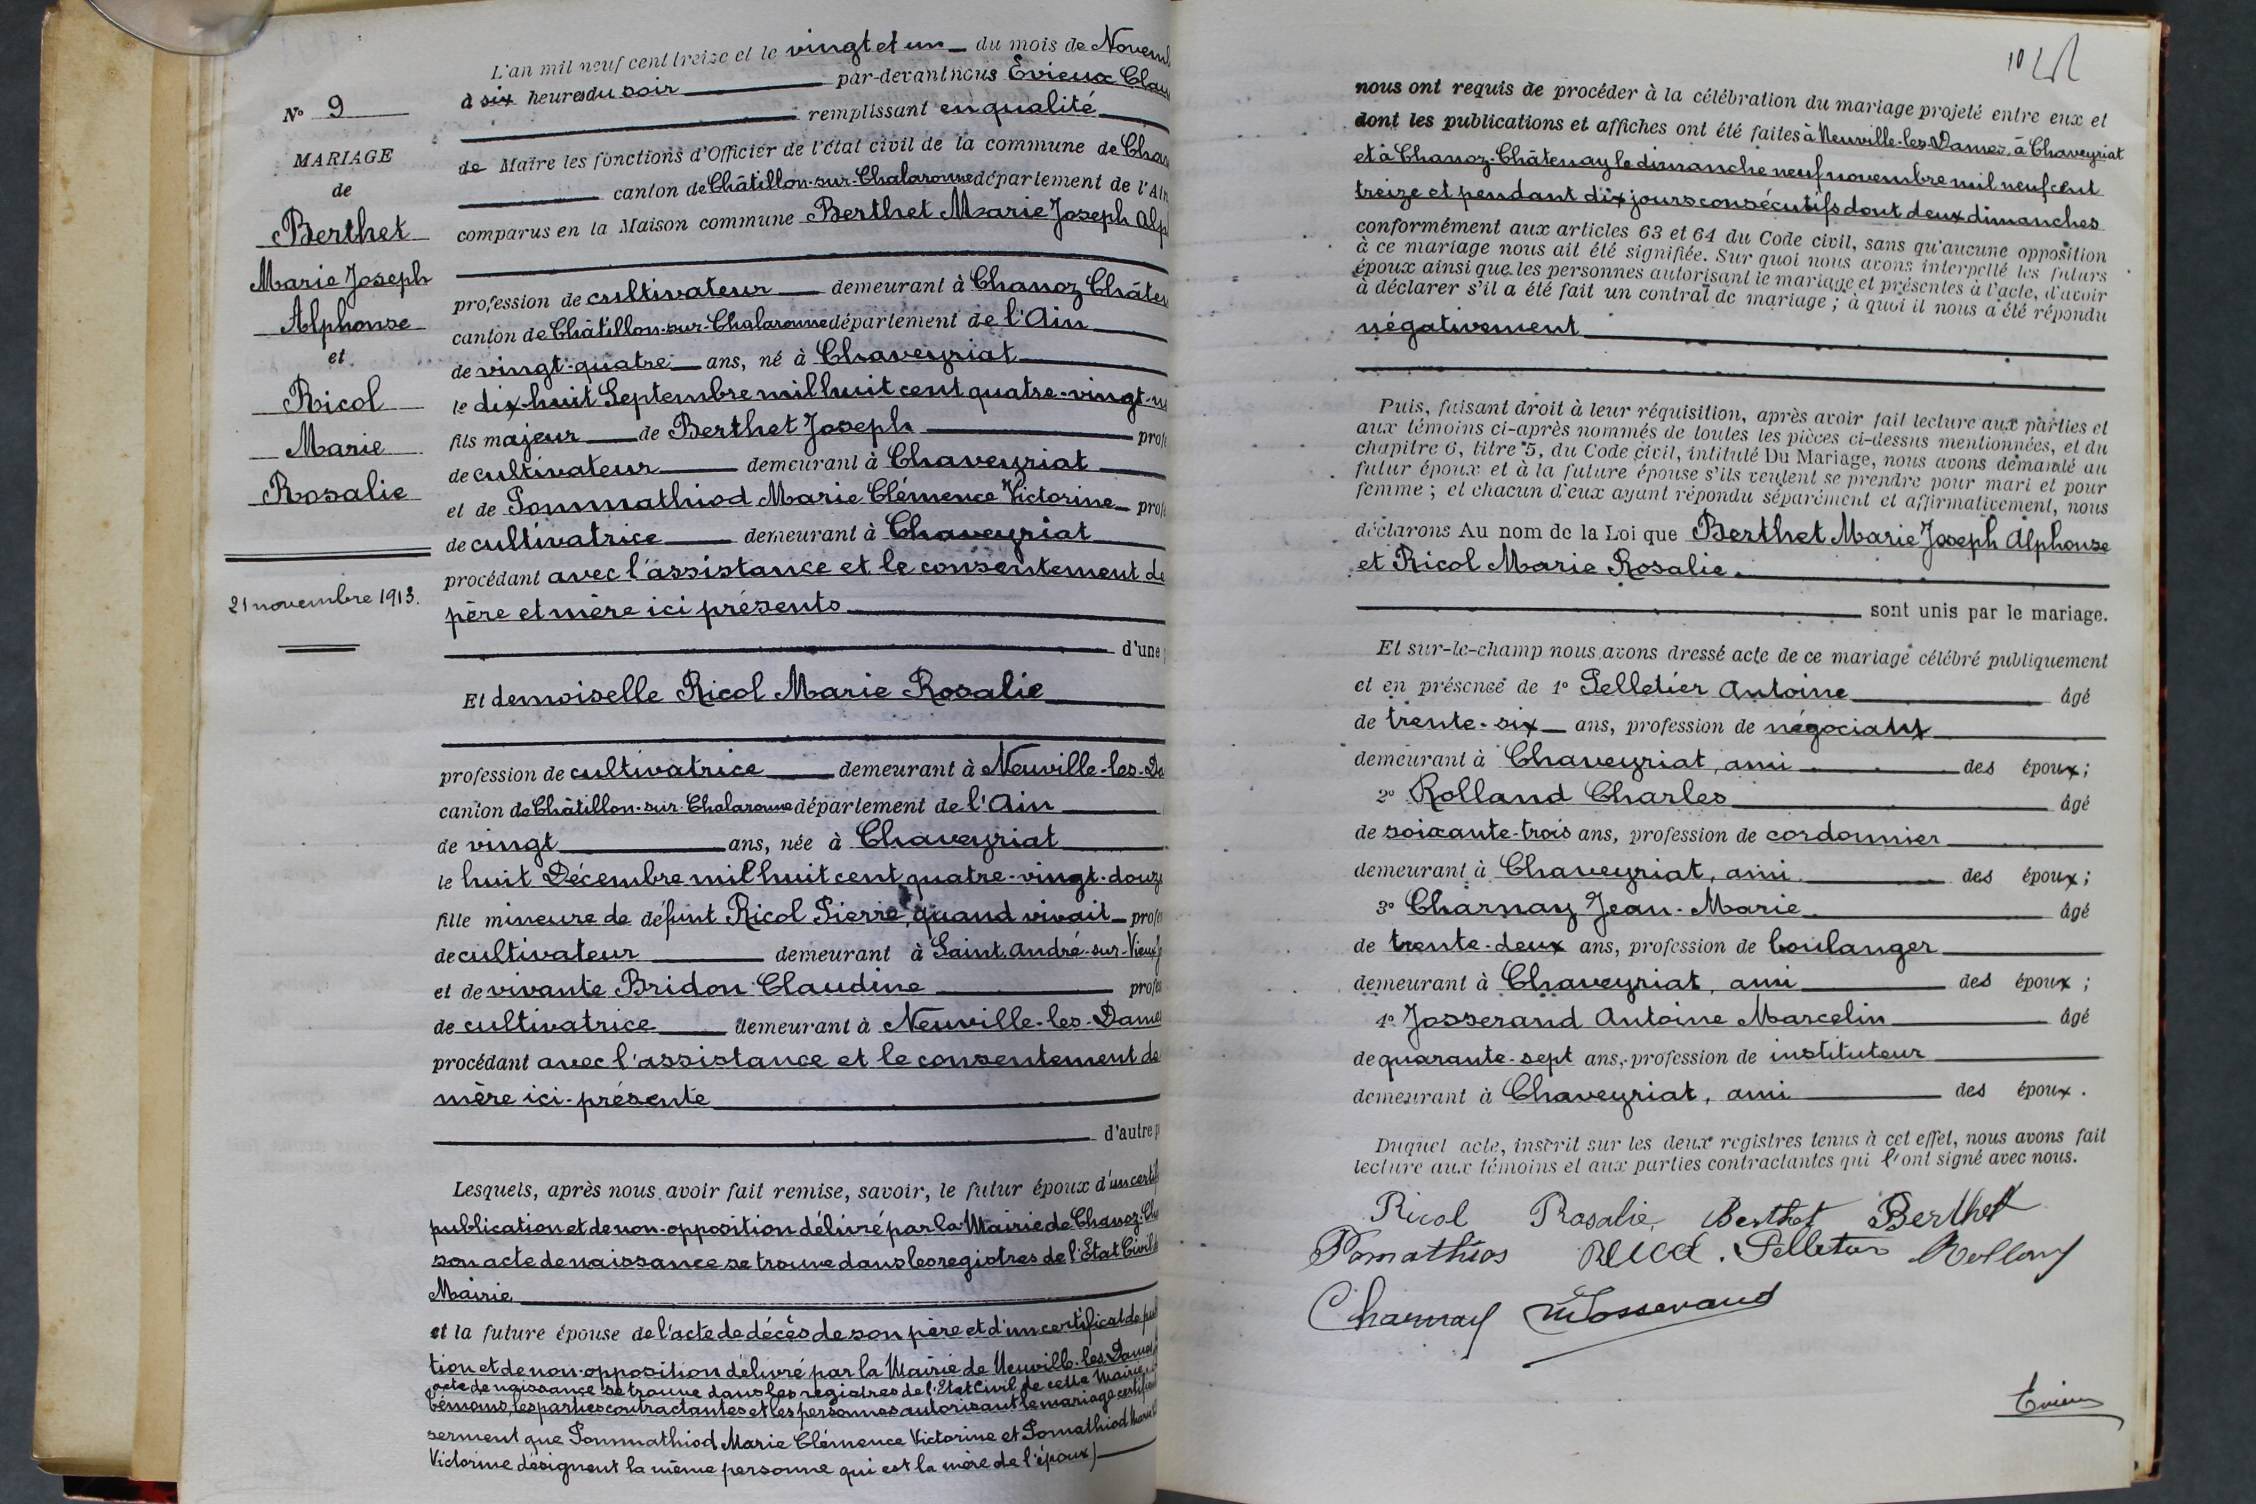 N° 9
MARIAGE
de
Berthet
Marie Joseph
Alphonse
et
Ricol
Marie
Rosalie
21 novembre 1913.
L'an mil neuf cent treize et le vingt et un du mois de Novem
à six heures du soir par-devant nous Evieux Clau
remplissant en qualité
de Maire les fonctions d'Officier de l'état civil de la commune de Cha
canton de Châtillon-sur-Chalaronne département de l'Ain
comparus en la Maison commune Berthet Marie Joseph Alp
profession de cultivateur demeurant à Chanoz Châte
canton de Châtillon-sur-Chalaronne département de l'Ain
de vingt-quatre ans, né à Chaveyriat
le dix-huit Septembre mil huit cent quatre-vingt-n
fils majeur de Berthet Joseph prof
de cultivateur demeurant à Chaveyriat
et de Pommathiod Marie Clémence Victorine prof
de cultivatrice demeurant à Chaveyriat
procédant avec l'assistance et le consentement de
père et mère ici présents
d'une
Et demoiselle Ricol Marie Rosalie
profession de cultivatrice demeurant à Neuville-les-Da
canton de Châtillon-sur-Chalaronne département de l'Ain
de vingt ans, née à Chaveyriat
le huit Décembre mil huit cent quatre-vingt-douze
fille mineure de défunt Ricol Pierre, quand vivait profe
de cultivateur demeurant à Saint-André-sur-Vieux
et de vivante Bridon Claudine profes
de cultivatrice demeurant à Neuville-les-Dames
procédant avec l'assistance et le consentement de
mère ici-présente
d'autre p
Lesquels, après nous avoir fait remise, savoir, le futur époux d'un certif
publication et de non-opposition délivré par la Mairie de Chanoz-Ch
son acte de naissance se trouve dans les registres de l'Etat Civil d
Mairie
et la future épouse de l'acte de décès de son père et d'un certificat de pub
tion et de non-opposition délivré par la Mairie de Neuville-les-Dames
acte de naissance se trouve dans les registres de l'Etat Civil de cette Mairie
témoins, les parties contractantes et les personnes autorisant le mariage certifi
serment que Pommathiod Marie Clémence Victorine et Pomathiod Marie
Victorine désignent la même personne qui est la mère de l'époux)
10
nous ont requis de procéder à la célébration du mariage projeté entre eux et
dont les publications et affiches ont été faites à Neuville-les-Dames, à Chaveyriat
et à Chanoz-Châtenay le dimanche neuf novembre mil neuf cent
treize et pendant dix jours consécutifs dont deux dimanches
conformément aux articles 63 et 64 du Code civil, sans qu'aucune opposition
à ce mariage nous ait été signifiée. Sur quoi nous avons interpellé les futurs
époux ainsi que les personnes autorisant le mariage et présentes à l'acte, d'avoir
à déclarer s'il a été fait un contrat de mariage ; à quoi il nous a été répondu
négativement
Puis, faisant droit à leur réquisition, après avoir fait lecture aux parties et
aux témoins ci-après nommés de toutes les pièces ci-dessus mentionnées, et du
chapitre 6, titre 5, du Code civil, intitulé Du Mariage, nous avons demandé au
futur époux et à la future épouse s'ils veulent se prendre pour mari et pour
femme ; et chacun d'eux ayant répondu séparément et affirmativement, nous
déclarons Au nom de la Loi que Berthet Marie Joseph Alphonse
et Ricol Marie Rosalie
sont unis par le mariage.
Et sur-le-champ nous avons dressé acte de ce mariage célébré publiquement
et en présence de 1° Pelletier Antoine âgé
de trente-six ans, profession de négociant
demeurant à Chaveyriat, ami des époux ;
2° Rolland Charles âgé
de soixante-trois ans, profession de cordonnier
demeurant à Chaveyriat, ami des époux ;
3° Charnay Jean-Marie âgé
de trente-deux ans, profession de boulanger
demeurant à Chaveyriat, ami des époux ;
4° Josserand Antoine Marcelin âgé
de quarante-sept ans, profession de instituteur
demeurant à Chaveyriat, ami des époux.
Duquel acte, inscrit sur les deux registres tenus à cet effet, nous avons fait
lecture aux témoins et aux parties contractantes qui l'ont signé avec nous.
Ricol Rosalie Berthet Berthet
Pomathios Pelletier Rolland
Charnay Josserand
Evieux